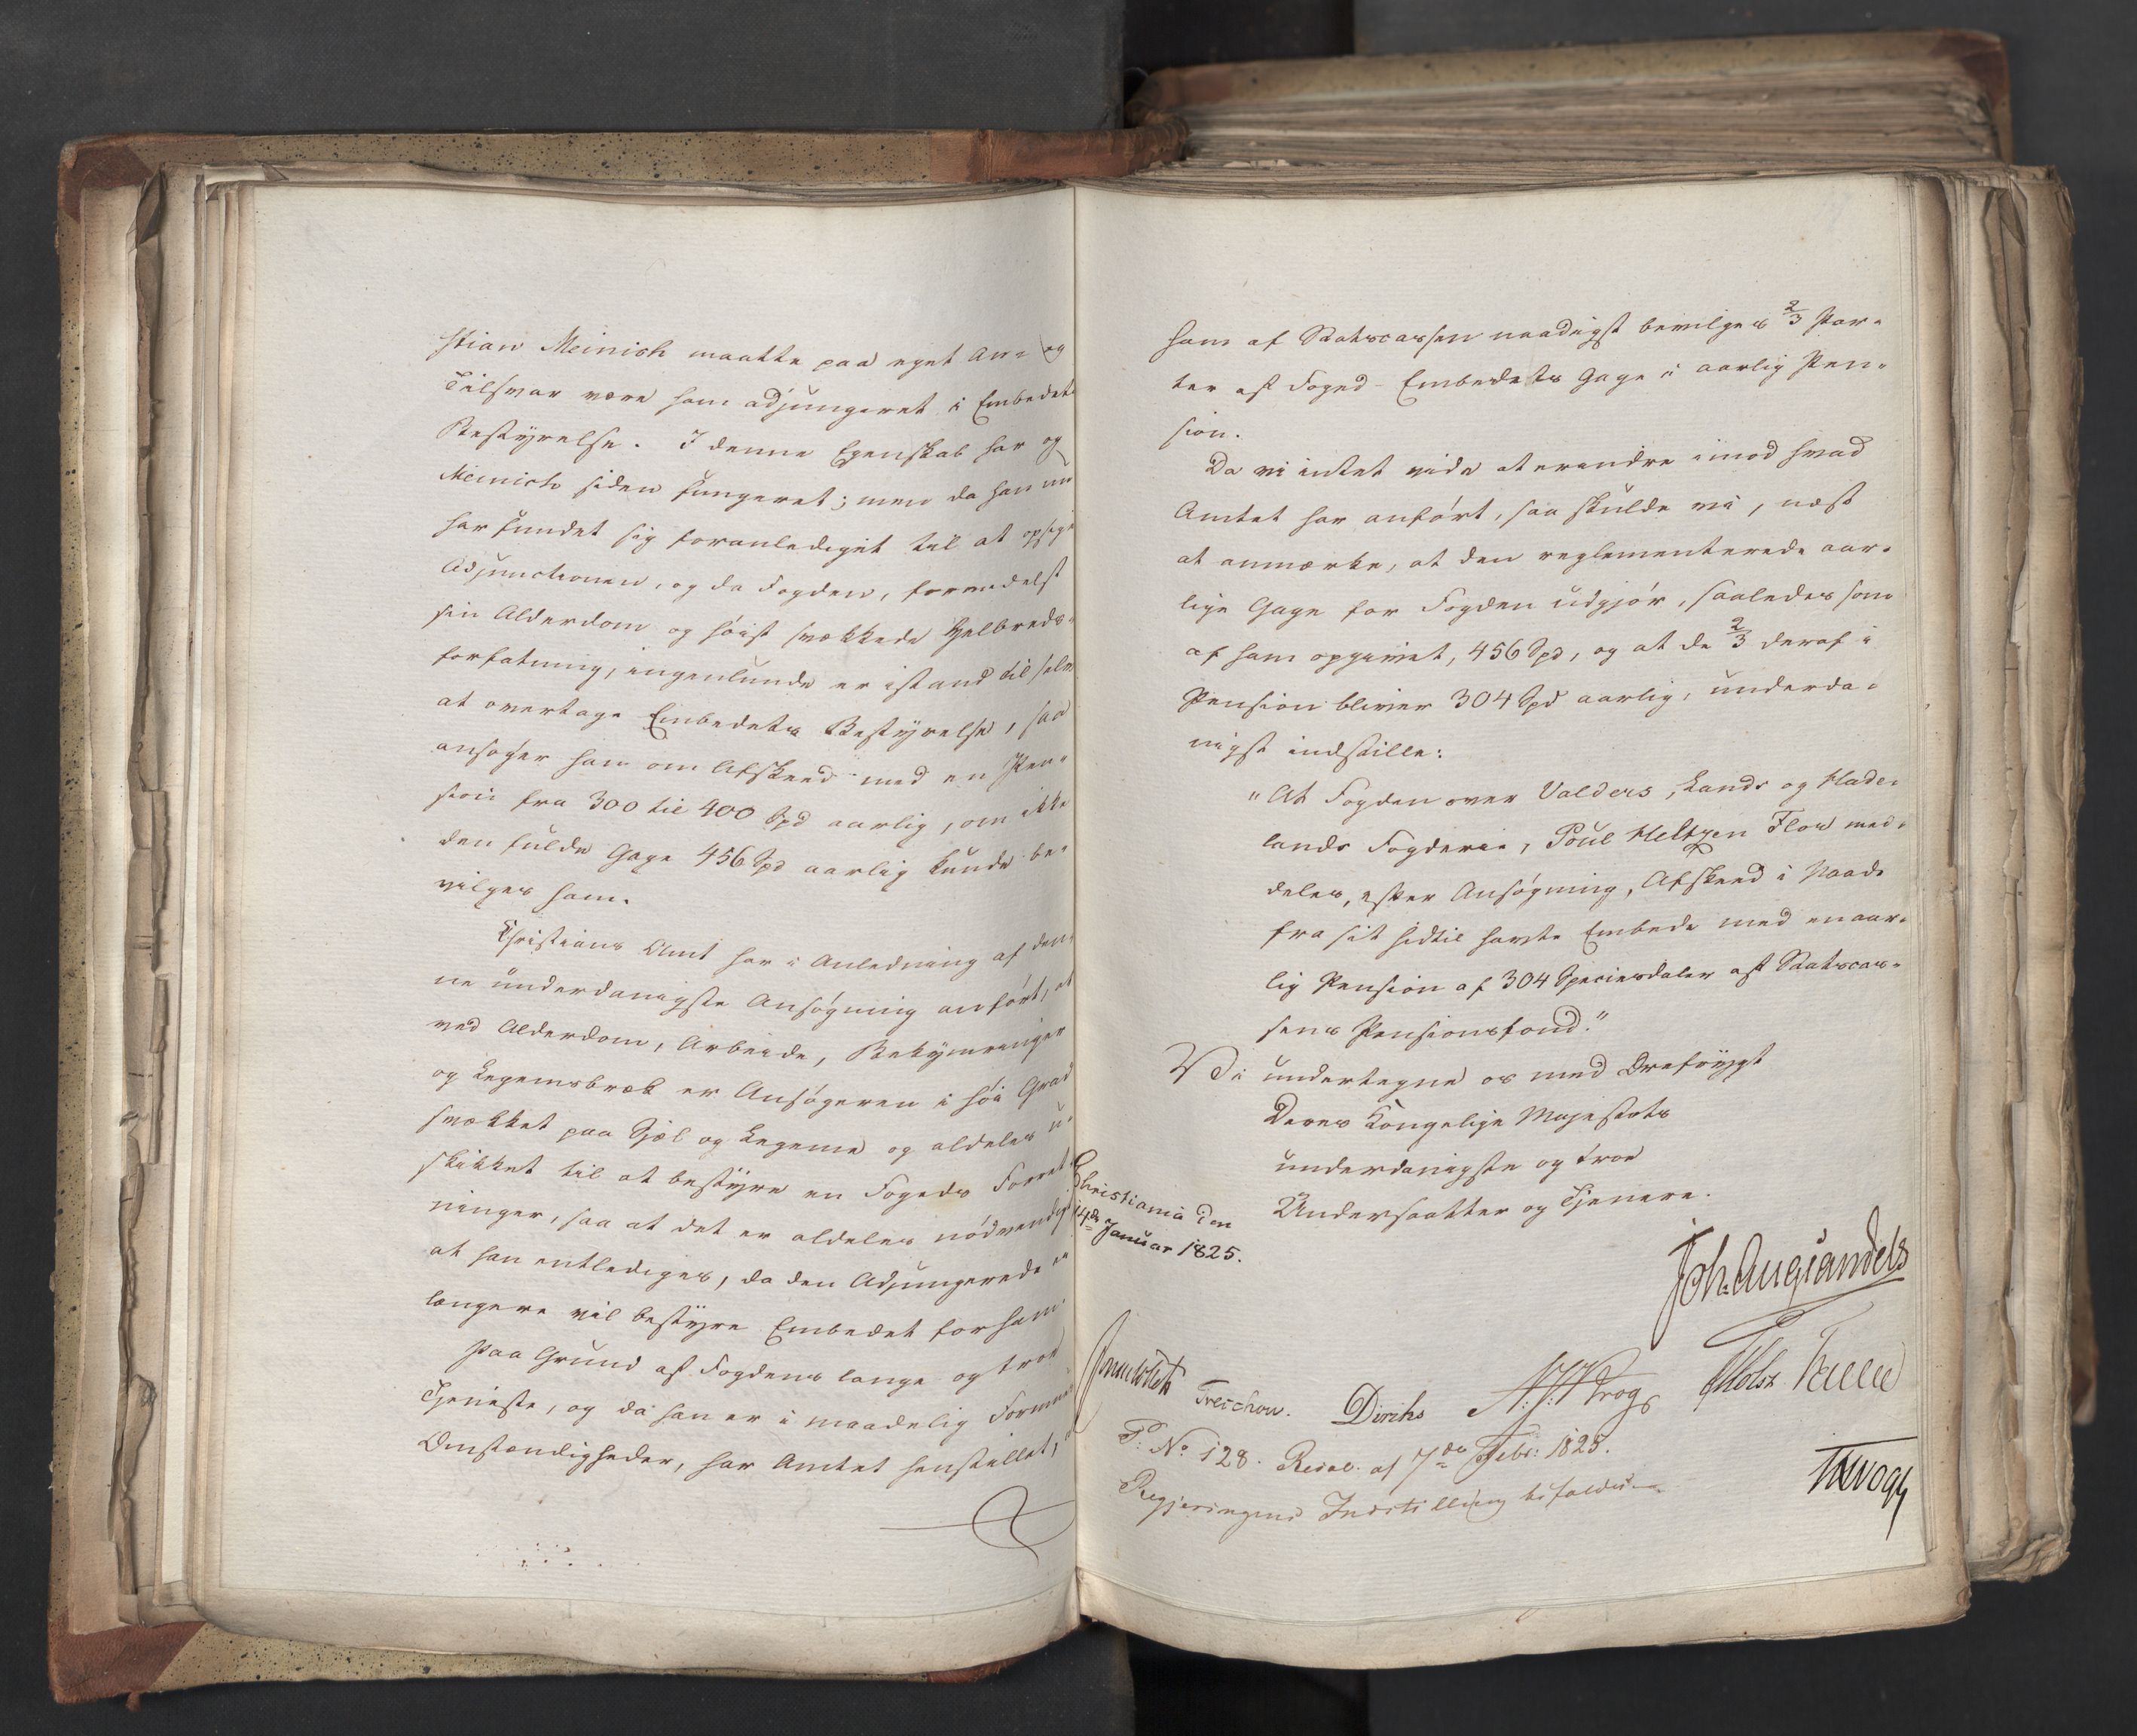 stian Meinich maatte paa eget An- og
Tilsvar være ham adjungeret i Embedets
Bestyrelse. I denne Egenskab har og
Meinich siden fungeret; men da han nu
har fundet sig foranlediget til at opsige
Adjunctionen, og da Fogden, formedelst
sin Alderdom og høist svækkede Helbreds-
forfatning, ingenlunde er istand til selv
at overtage Embedets Bestyrelse, saa
ansøger han om Afskeed med en Pen-
sion fra 300 til 400 Spd aarlig, om ikke
den fulde Gage 456 Spd aarlig kunde be-
vilges ham.
Christians Amt har i Anledning af den-
ne underdanigste Ansøgning anført, at
ved Alderdom, Arbeide, Bekymringer
og Legemsbræk er Ansøgeren i høi Grad
svækket paa Sjæl og Legeme og aldeles u-
skikket til at bestyre en Fogeds Forret-
ninger, saa at det er aldeles nødvendigt
at han entlediges, da den Adjungerede ei
længere vil bestyre Embedet for ham.
Paa Grund af Fogdens lange og troe
Tjeneste, og da han er i maadelig Formues
Omstændigheder, har Amtet henstillet,
ham af Statscassen naadigst bevilges 2/3 Par-
ter af Foged-Embedets Gage i aarlig Pen-
sion.
Da vi intet vide at erindre imod hvad
Amtet har anført, saa skulde vi, næst
at anmærke, at den reglementerede aar-
lige Gage for Fogden udgjør, saaledes som
af ham opgivet, 456 Spd, og at de 2/3 deraf i
Pension bliver 304 Spd aarlig, underda-
nigst indstille:
"At Fogden over Valders, Lands og Hade-
lands Fogderie, Poul Heltzen Flor med-
deles, efter Ansøgning, Afskeed i Naade
fra sit hidtil havte Embede med en aar-
lig Pension af 304 Speciesdaler af Statscas-
sens Pensionsfond."
Vi undertegne os med Ærefrygt
Deres Kongelige Majestæts
underdanigste og troe
Undersaatter og Tjenere.
Christiania den
14de Januar 1825.
Joh. Aug Sandels
Sommerhielm Treschow. Diriks N. J. Krog P Motzfeldt
P. No 128. Resol. af 7de Febr: 1825.
Regjeringens Indstilling bifaldes